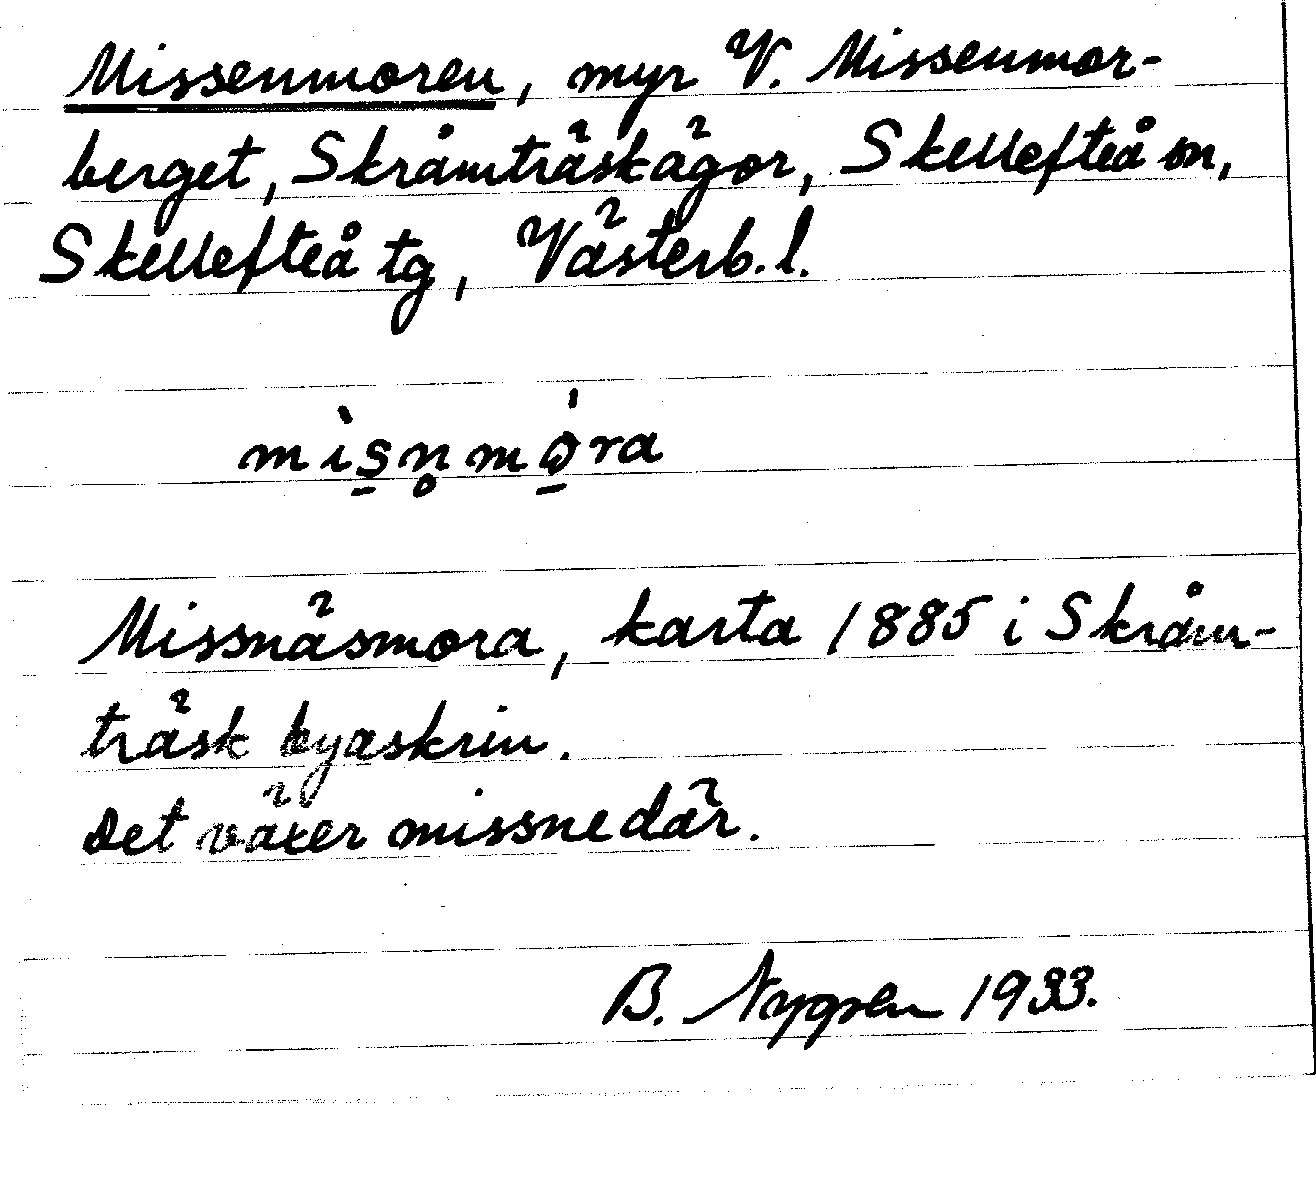 Missenmoren, myr V. Missenmor-
berget, Skråmträskågor, Skellefteå sn,
Skellefteå tg, Västerb. l.
mìs̱n̥mò̱ra
Missnäsmora, karta 1885 i Skråm-
träsk byaskrin.
Det växer missne där.
B. Nygren 1933.